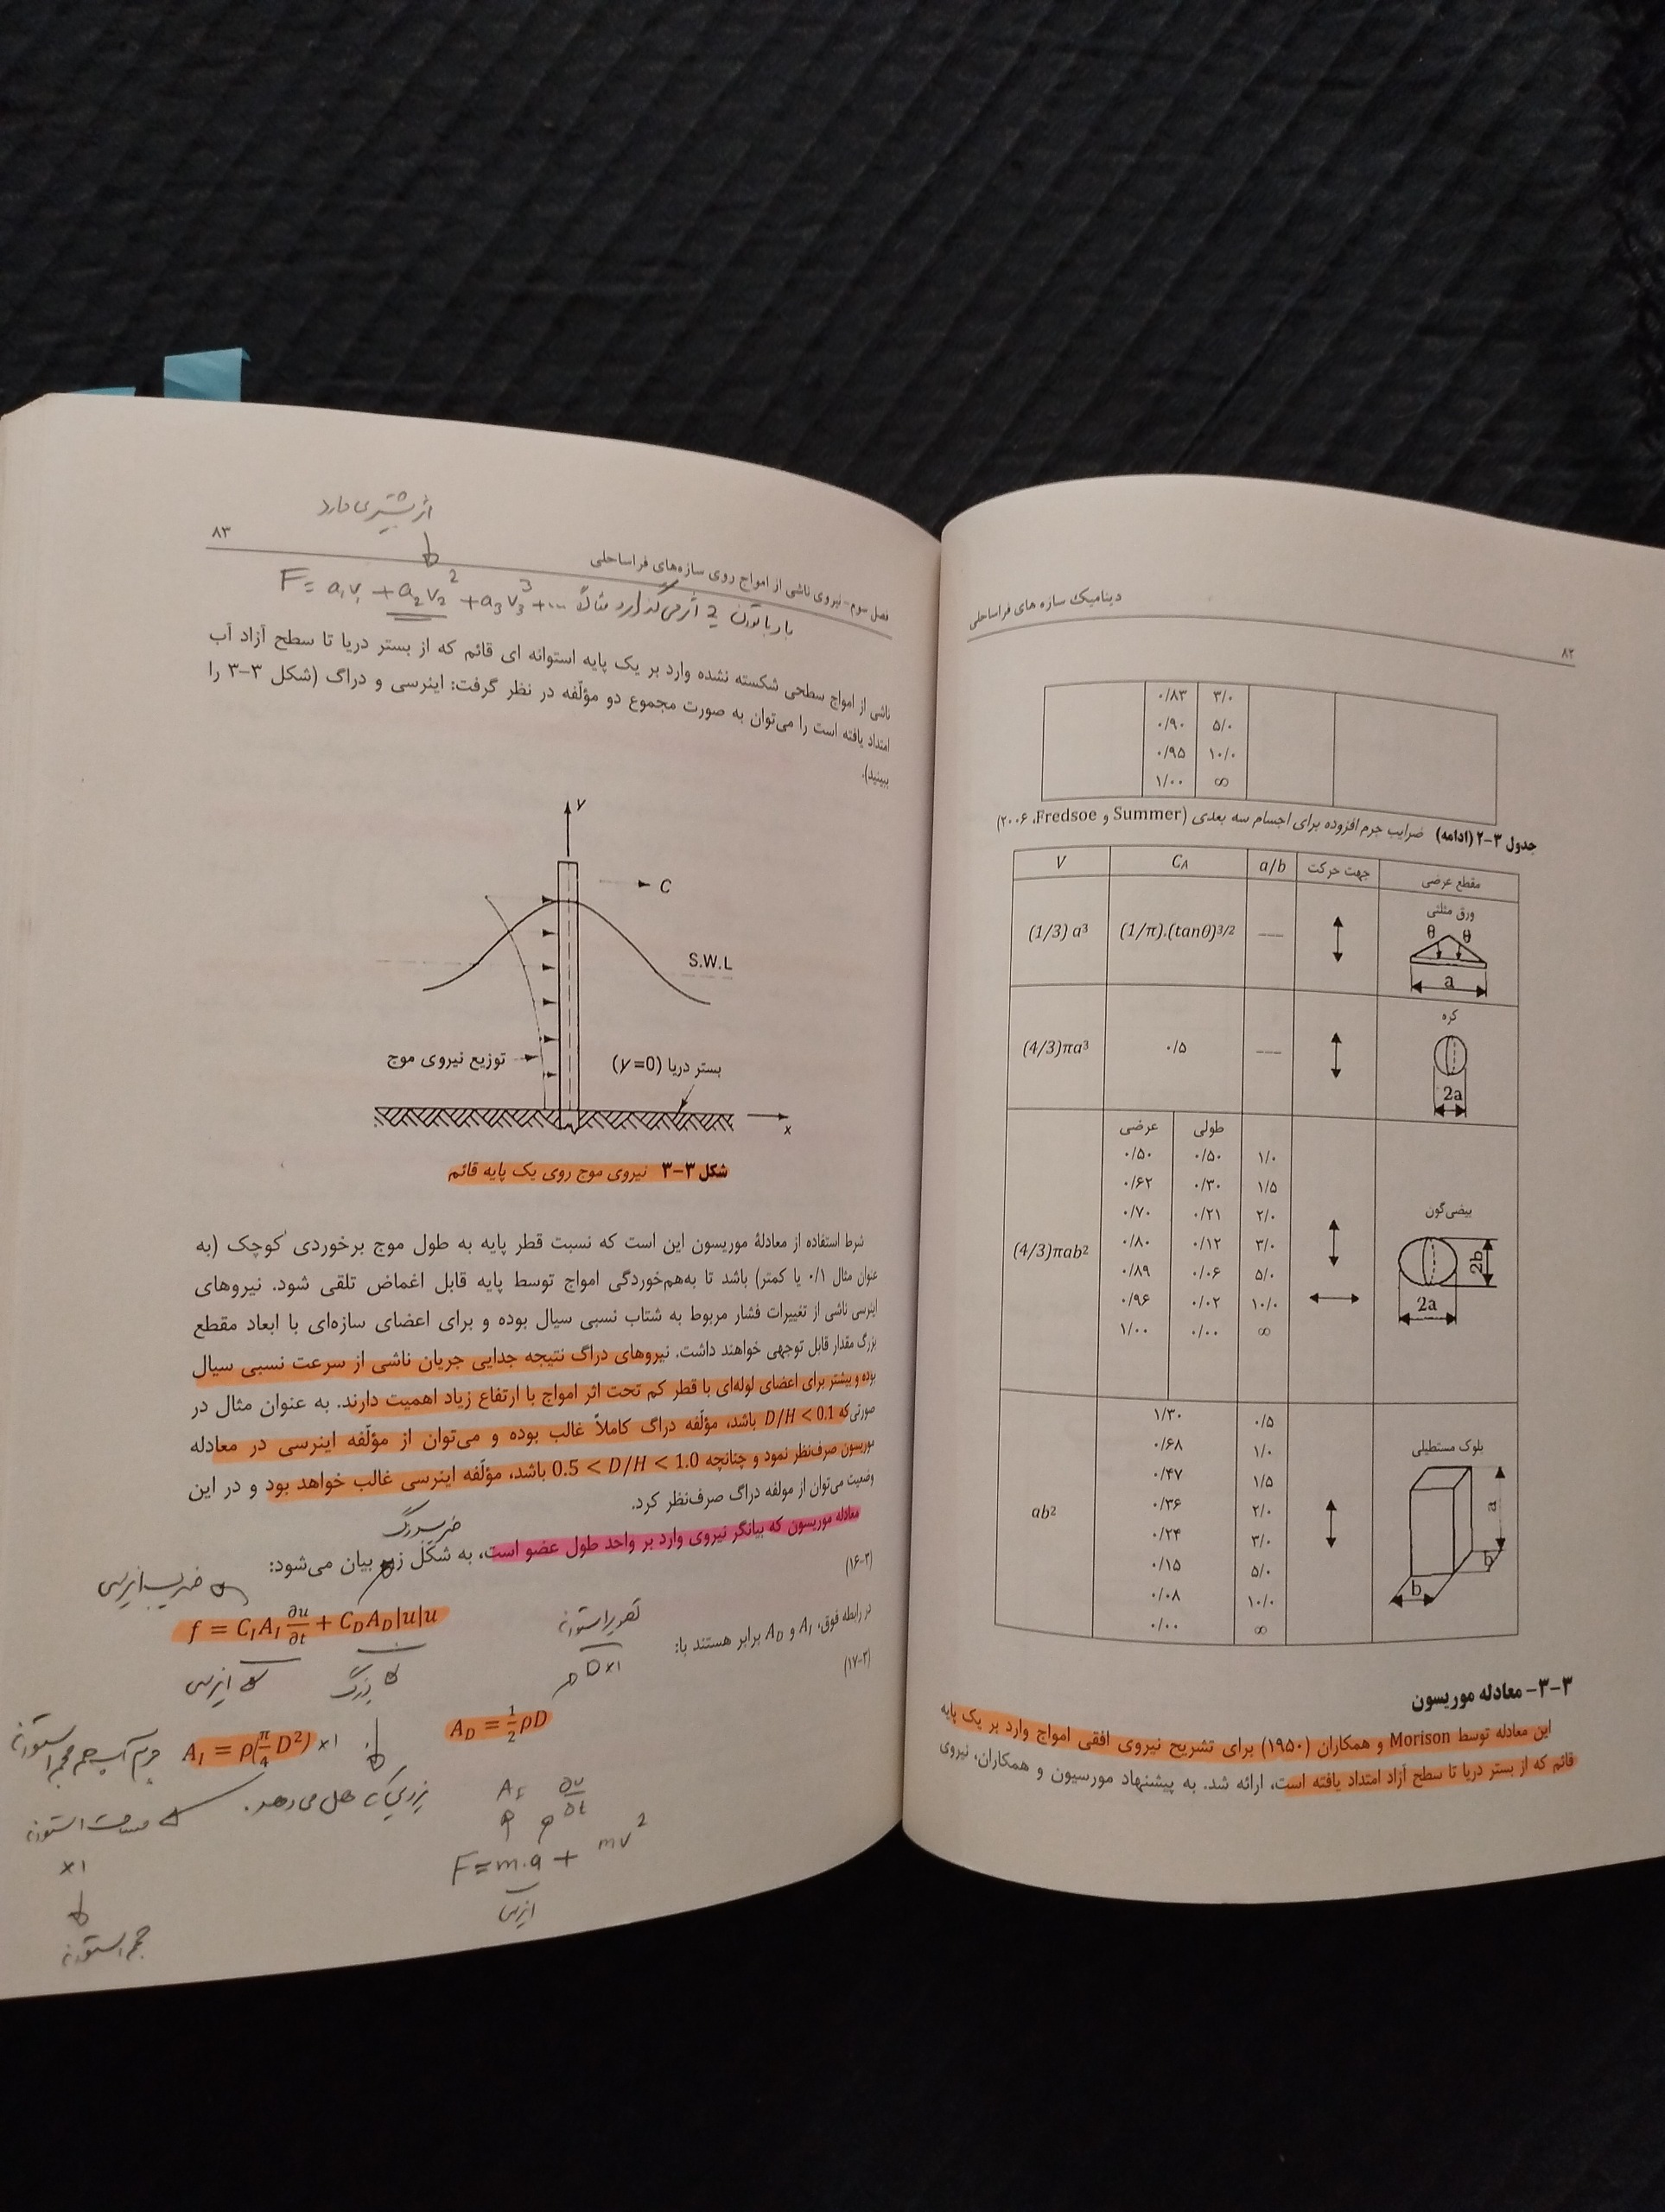 ۸۲
دینامیک سازه های فراساحلی
۳/۰ ۰/۸۳
۵/۰ ۰/۹۰
۱۰/۰ ۰/۹۵
∞ ۱/۰۰
جدول ۳-۲ (ادامه) ضرایب جرم افزوده برای اجسام سه بعدی (Summer و Fredsoe، ۲۰۰۶)
مقطع عرضی جهت حرکت a/b CA V
ورق مثلثی
θ θ
a
--- (1/π).(tanθ)^3/2 (1/3) a³
کره
2a
--- ۰/۵ (4/3)πa³
بیضی‌گون
2b
2a
طولی عرضی
۱/۰ ۰/۵۰ ۰/۵۰
۱/۵ ۰/۳۰ ۰/۶۲
۲/۰ ۰/۲۱ ۰/۷۰
۳/۰ ۰/۱۲ ۰/۸۰
۵/۰ ۰/۰۶ ۰/۸۹
۱۰/۰ ۰/۰۲ ۰/۹۶
∞ ۰/۰۰ ۱/۰۰
(4/3)πab²
بلوک مستطیلی
a
b
b
۰/۵ ۱/۳۰
۱/۰ ۰/۶۸
۱/۵ ۰/۴۷
۲/۰ ۰/۳۶
۳/۰ ۰/۲۴
۵/۰ ۰/۱۵
۱۰/۰ ۰/۰۸
∞ ۰/۰۰
ab²
۳-۳- معادله موریسون
این معادله توسط Morison و همکاران (۱۹۵۰) برای تشریح نیروی افقی امواج وارد بر یک پایه
قائم که از بستر دریا تا سطح آزاد امتداد یافته است، ارائه شد. به پیشنهاد مورسیون و همکاران، نیروی
اثر بیشتری دارد
فصل سوم- نیروی ناشی از امواج روی سازه‌های فراساحلی
۸۳
بار با توان 2 اثر می‌گذارد مثلاً F = a₁v₁ + a₂v₂² + a₃v₃³ + ...
ناشی از امواج سطحی شکسته نشده وارد بر یک پایه استوانه ای قائم که از بستر دریا تا سطح آزاد آب
امتداد یافته است را می‌توان به صورت مجموع دو مؤلّفه در نظر گرفت: اینرسی و دراگ (شکل ۳-۳ را
ببینید).
y
C
S.W.L
توزیع نیروی موج
بستر دریا (y=0)
x
شکل ۳-۳ نیروی موج روی یک پایه قائم
شرط استفاده از معادلهٔ موریسون این است که نسبت قطر پایه به طول موج برخوردی کوچک (به
عنوان مثال ۰/۱ یا کمتر) باشد تا به‌هم‌خوردگی امواج توسط پایه قابل اغماض تلقی شود. نیروهای
اینرسی ناشی از تغییرات فشار مربوط به شتاب نسبی سیال بوده و برای اعضای سازه‌ای با ابعاد مقطع
بزرگ مقدار قابل توجهی خواهند داشت. نیروهای دراگ نتیجه جدایی جریان ناشی از سرعت نسبی سیال
بوده و بیشتر برای اعضای لوله‌ای با قطر کم تحت اثر امواج با ارتفاع زیاد اهمیت دارند. به عنوان مثال در
صورتی‌که D/H < 0.1 باشد، مؤلّفه دراگ کاملاً غالب بوده و می‌توان از مؤلّفه اینرسی در معادله
موریسون صرف‌نظر نمود و چنانچه 0.5 < D/H < 1.0 باشد، مؤلّفه اینرسی غالب خواهد بود و در این
وضعیت می‌توان از مولفه دراگ صرف‌نظر کرد.
ضریب دراگ
معادله موریسون که بیانگر نیروی وارد بر واحد طول عضو است، به شکل زیر بیان می‌شود:
ضریب اینرسی
(۳-۱۶)
f = C_I A_I ∂u/∂t + C_D A_D|u|u
اینرسی
دراگ
تصویر استوانه
D×1
در رابطه فوق، A_I و A_D برابر هستند با:
(۳-۱۷)
A_D = ½ρD
A_I = ρ(π/4 D²) ×1
جرم آب هم حجم استوانه
مساحت استوانه
×1
حجم استوانه
A_I ∂u/∂t
F = m.a + mv²
اینرسی